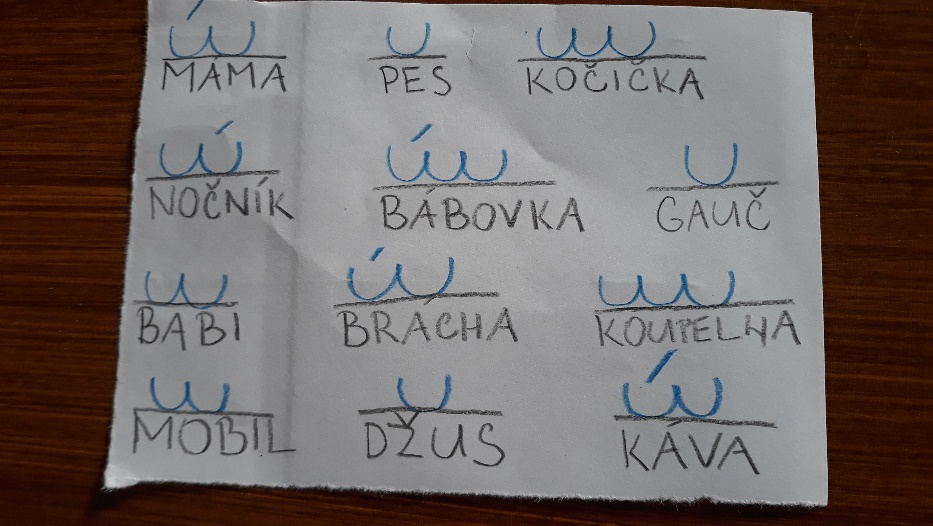 MÁMA PES KOČIČKA
NOČNÍK BÁBOVKA GAUČ
BABI BRÁCHA KOUPELNA
MOBIL DŽUS KÁVA